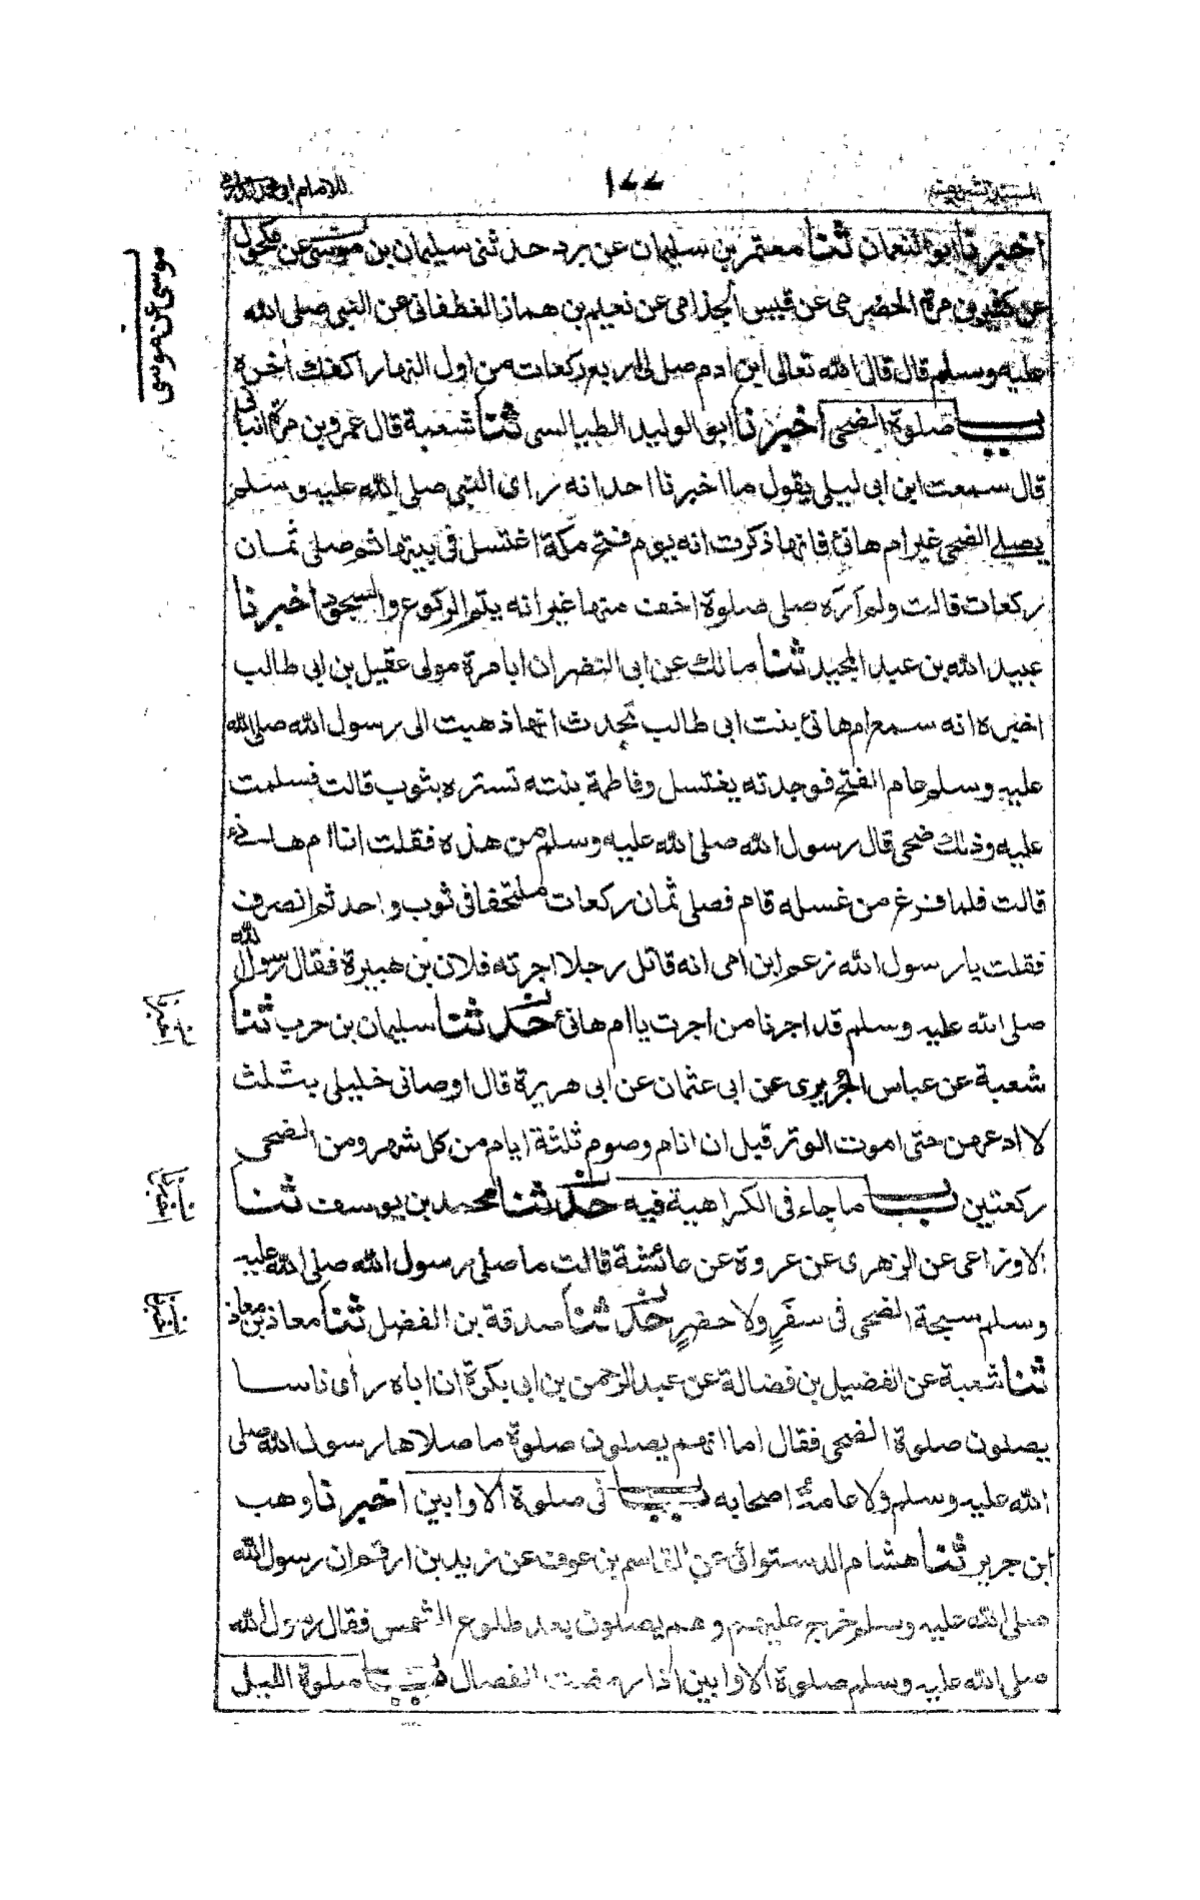 ١٧٧
اخبرنا ابو النعمان ثنا معتمر بن سليمان عن برد حدثنى سليمان بن موسى عن مكحول
عن كثير بن مرة الحضرمى عن قيس الجذامى عن نعيم بن هماز الغطفانى عن النبى صلى الله
عليه وسلم قال قال الله تعالى ابن ادم صل لى اربع ركعات من اول النهار اكفك اخره
باب صلوة الضحى اخبرنا ابو الوليد الطيالسى ثنا شعبة قال عمرو بن مرة انبأنى
قال سمعت ابن ابى ليلى يقول ما اخبرنا احد انه راى النبى صلى الله عليه وسلم
يصلى الضحى غير ام هانئ فانها ذكرت انه يوم فتح مكة اغتسل فى بيتها ثم صلى ثمان
ركعات قالت ولم آرَه صلى صلوة اخف منها غير انه يتم الركوع والسجود اخبرنا
عبيد الله بن عبد المجيد ثنا مالك عن ابى النضر ان ابا مرة مولى عقيل بن ابى طالب
اخبره انه سمع ام هانئ بنت ابى طالب تحدث انها ذهبت الى رسول الله صلى الله
عليه وسلم عام الفتح فوجدته يغتسل وفاطمة بنته تستره بثوب قالت فسلمت
عليه وذلك ضحى قال رسول الله صلى الله عليه وسلم من هذه فقلت انا ام هانئ
قالت فلما فرغ من غسله قام فصلى ثمان ركعات ملتحفا فى ثوب واحد ثم انصرف
فقلت يا رسول الله زعم ابن امى انه قاتل رجلا اجرته فلان بن هبيرة فقال رسول الله
صلى الله عليه وسلم قد اجرنا من اجرت يا ام هانئ حدثنا سليمان بن حرب ثنا
شعبة عن عباس الجريرى عن ابى عثمان عن ابى هريرة قال اوصانى خليلى بثلث
لا ادعهن حتى اموت الوتر قبل ان انام وصوم ثلثة ايام من كل شهر ومن الضحى
ركعتين باب ما جاء فى الكراهية فيه حدثنا محمد بن يوسف ثنا
الاوزاعى عن الزهرى عن عروة عن عائشة قالت ما صلى رسول الله صلى الله عليه
وسلم سبحة الضحى فى سفَرٍ ولا حضرٍ حدثنا صدقة بن الفضل ثنا معاذ بن معاذ
ثنا شعبة عن الفضيل بن فضالة عن عبد الرحمن بن ابى بكرة ان اباه رأى ناسا
يصلون صلوة الضحى فقال اما انهم يصلون صلوة ما صلاها رسول الله صلى
الله عليه وسلم ولا عامة اصحابه باب فى صلوة الاوابين اخبرنا وهب
ابن جرير ثنا هشام الدستوائى عن القاسم بن عوف عن زيد بن ارقم ان رسول الله
صلى الله عليه وسلم خرج عليهم وهم يصلون بعد طلوع الشمس فقال رسول الله
صلى الله عليه وسلم صلوة الاوابين اذا رمضت الفصال باب صلوة الليل
موسى عن موسى
اخبرنا
اخبرنا
اخبرنا